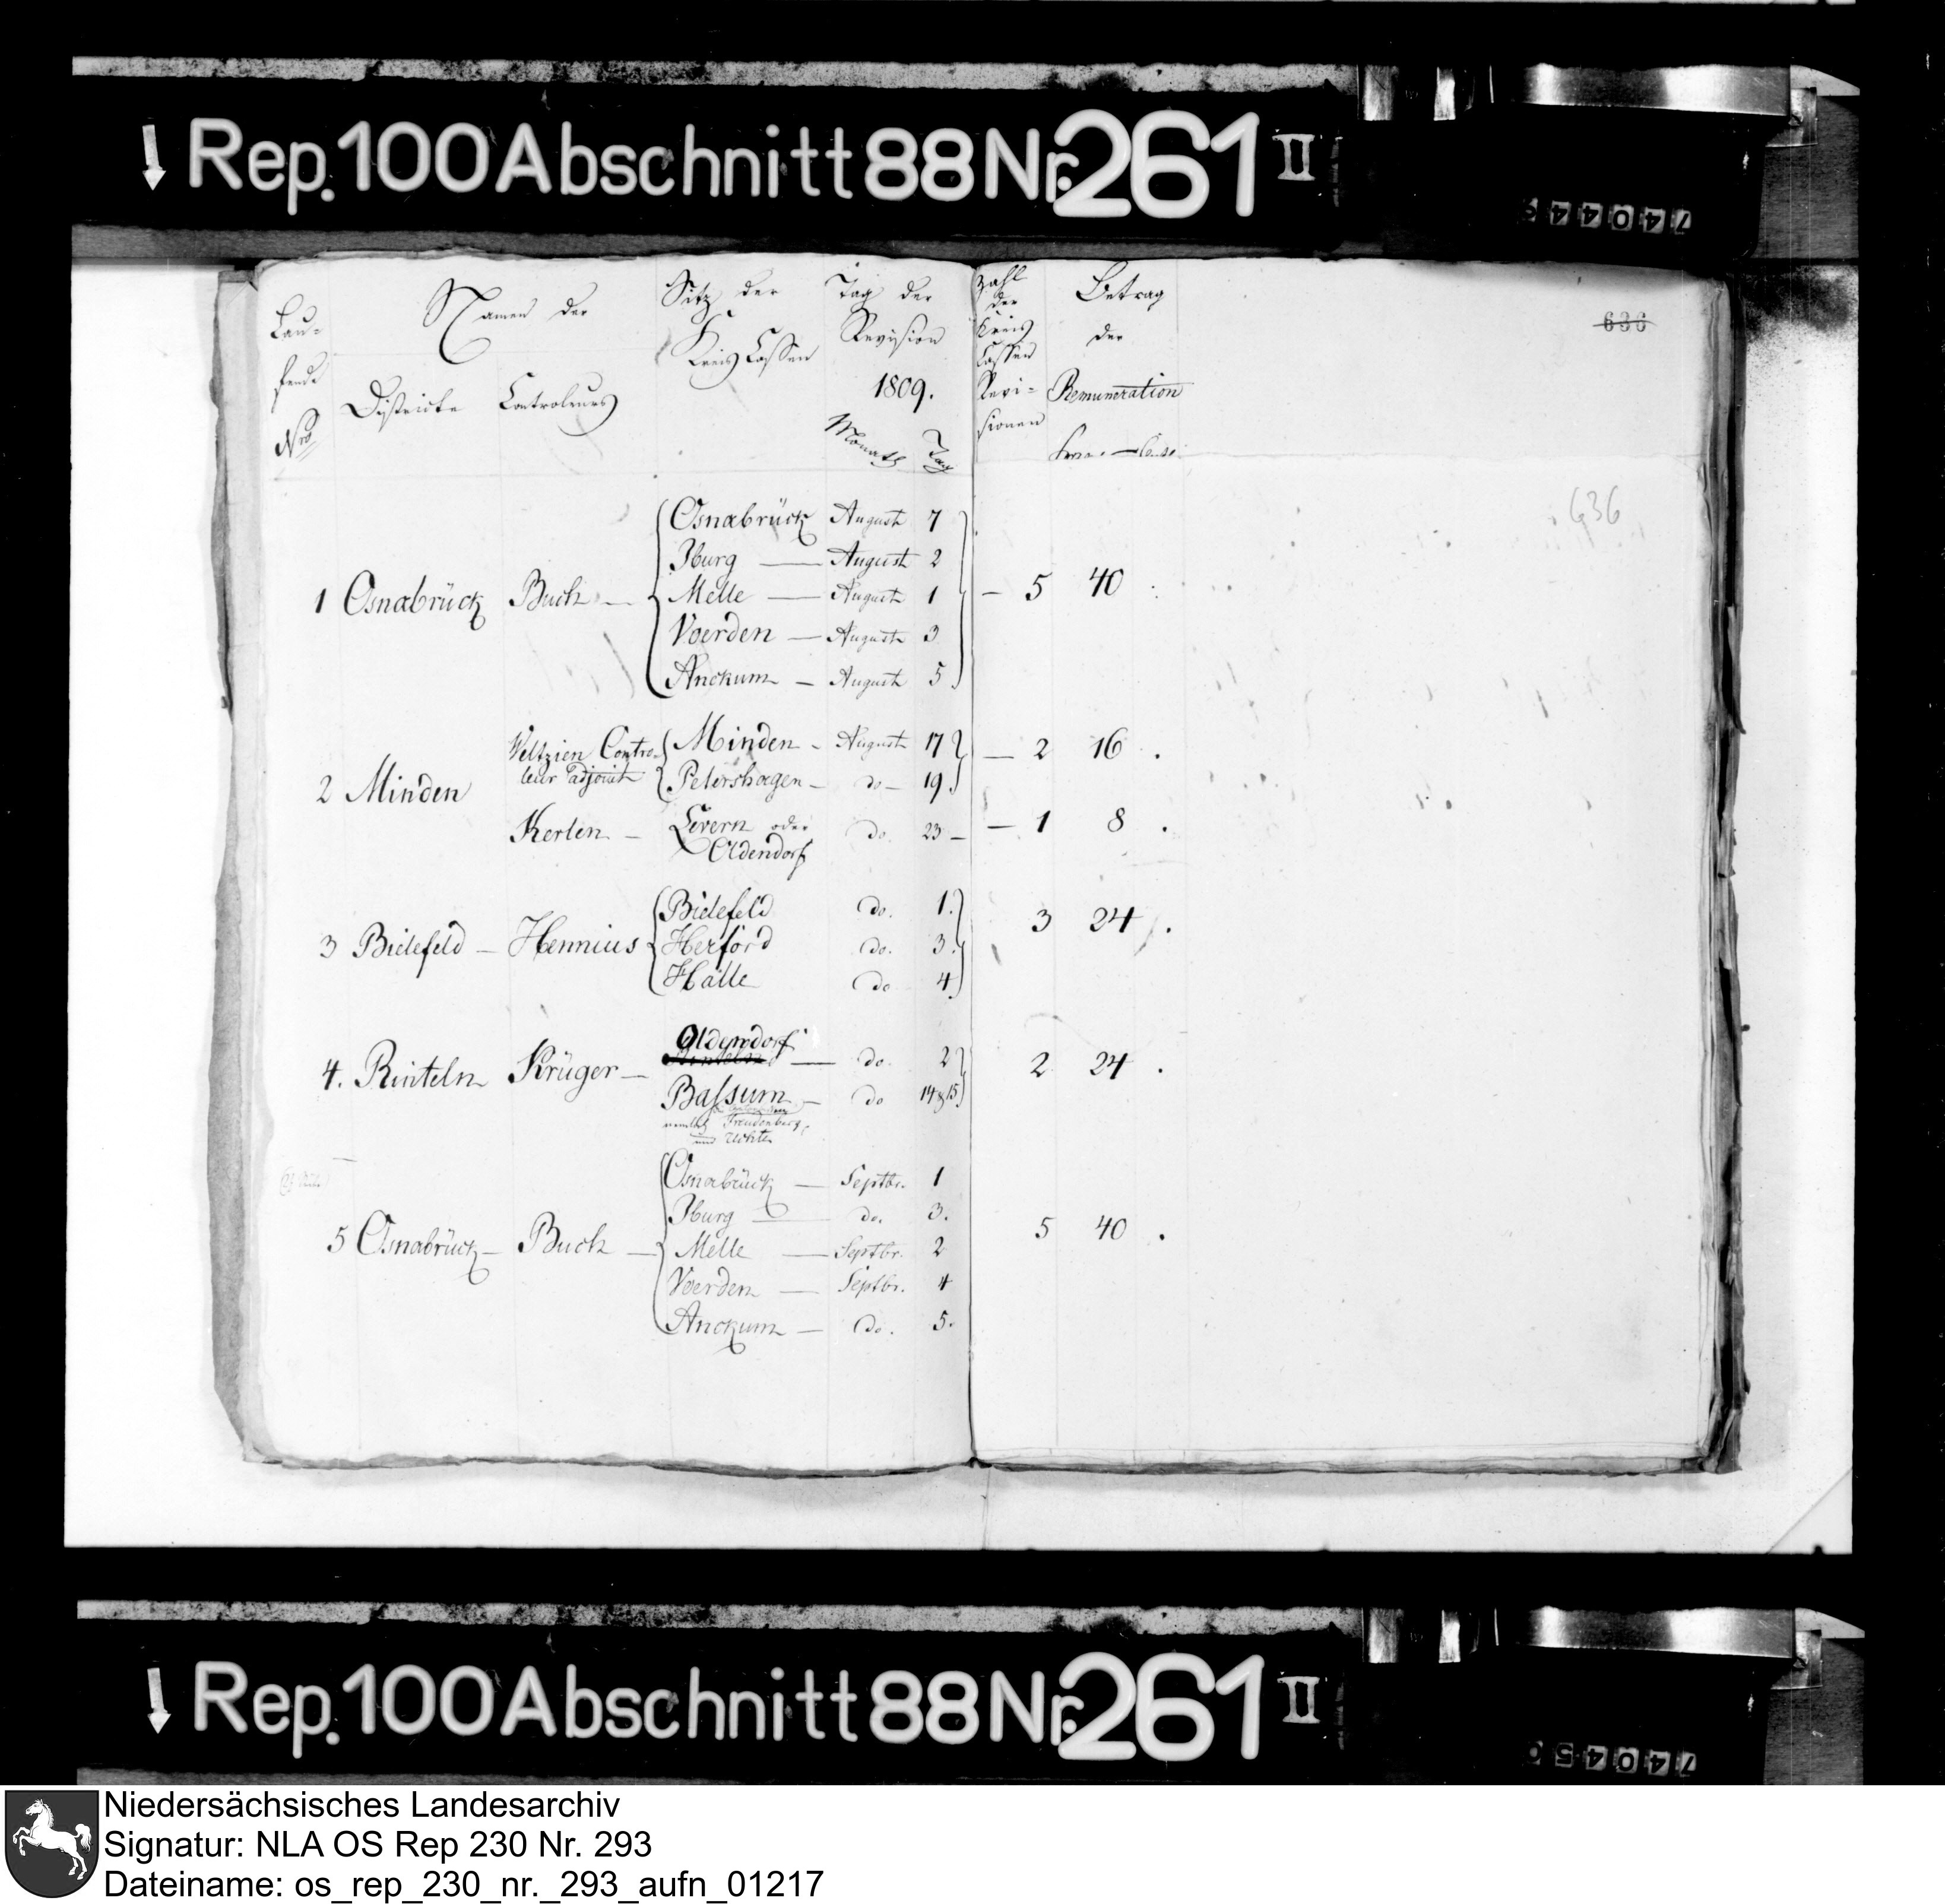 Rep. 100 Abschnitt 88 Nr. 261 II
74044
Lau=
fende
Nro
Namen der
Districte Controleurs
Sitz der
Kreis Cassen
Tag der
Revision
1809.
Monath Tag
Zahl
der
Kreis
Cassen
Revi=
sionen
Betrag
der
Remuneration
636
636
Osnabrück August 7
Iburg — August 2
1 Osnabrück Buch — Melle — August 1 — 5 40
Voerden — August 3
Anckum — August 5
Veltzien Contro- Minden - August 17 — 2 16 .
leur adjoint Petershagen - do - 19.
2 Minden
Kerlen - Levern oder do. 23 - — 1 8 .
Oldendorf
Bielefeld do. 1. 3 24 .
3 Bielefeld - Hennius Herford do. 3.
Halle do 4
Oldendorf
4. Rinteln Krüger - — do. 2 2 24 .
Bassum - do 14 & 15
Freudenberg,
und Uchte
Osnabrück — Septbr. 1
Iburg — do. 3.
5 Osnabrück - Buch — Melle — Septbr. 2 5 40 .
Voerden — Septbr. 4
Anckum — do. 5.
Rep. 100 Abschnitt 88 Nr. 261 II
74045
Niedersächsisches Landesarchiv
Signatur: NLA OS Rep 230 Nr. 293
Dateiname: os_rep_230_nr._293_aufn_01217